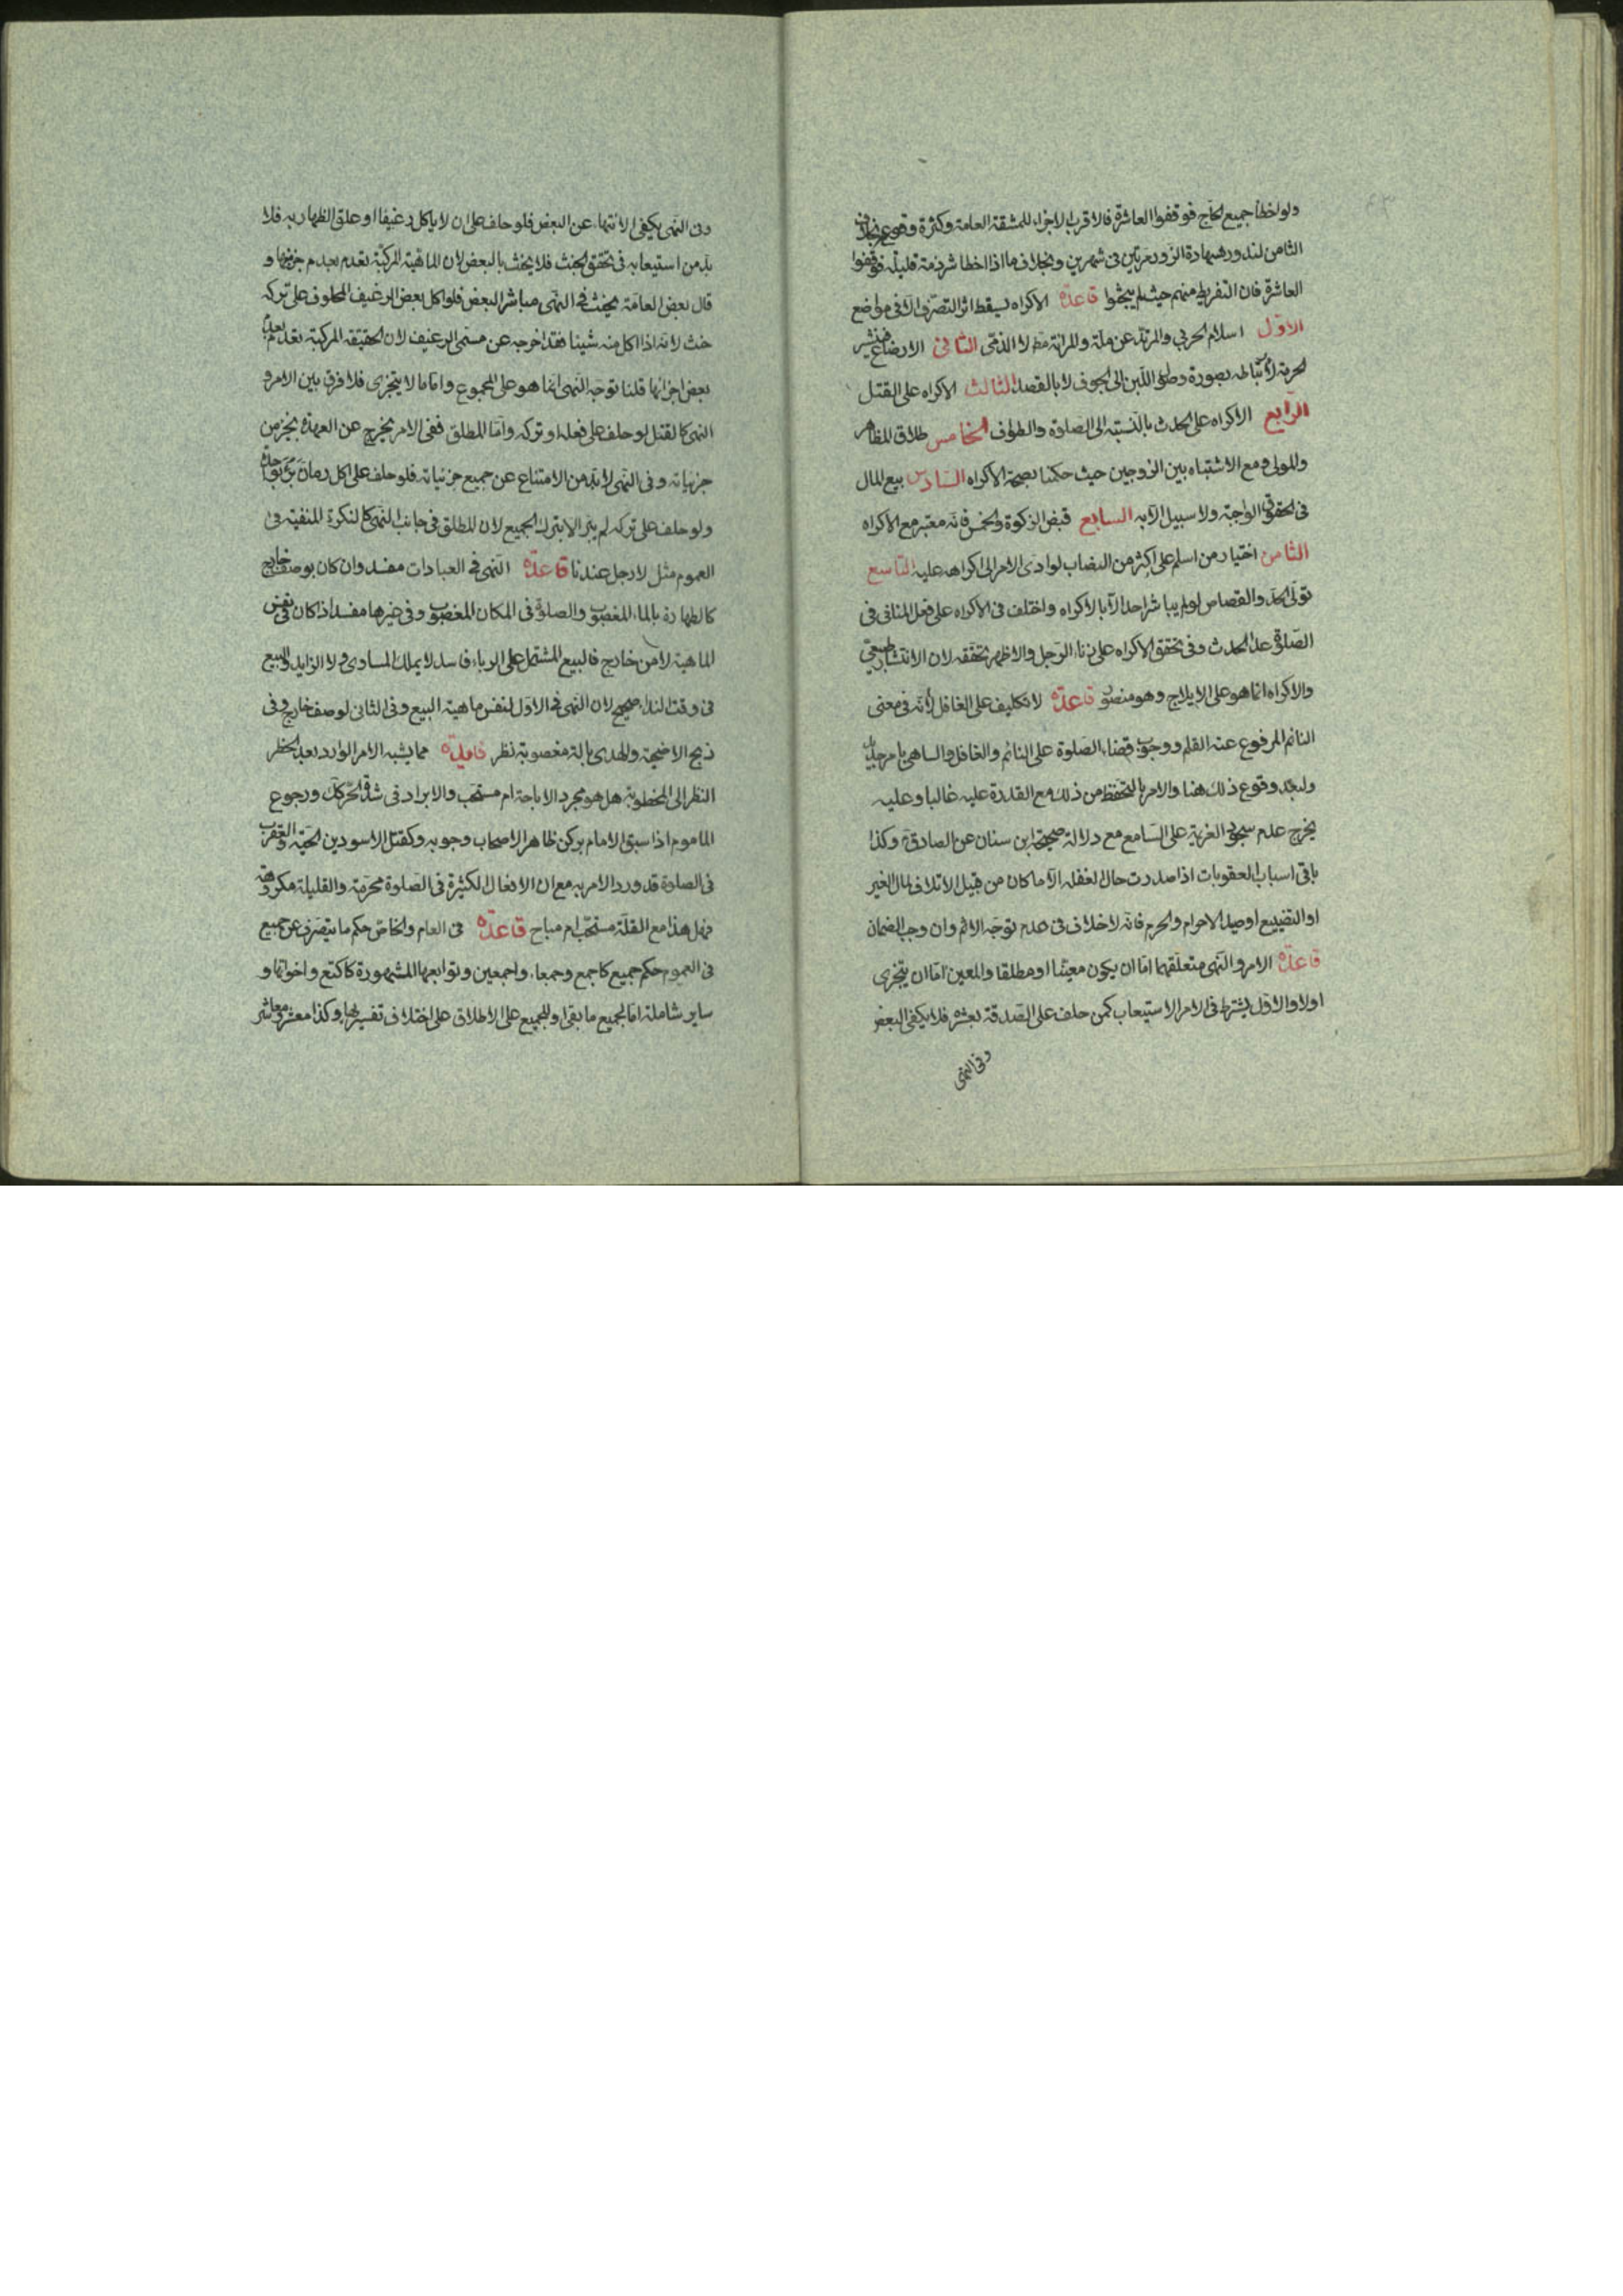 ولو اخطأ جميع الحاج فوقفوا العاشرة فالاقرب الاجزاء للمشقة العامة وكثرة وقوع
الثامن لندور شهادة الزور مرتين في شهرين وبخلاف ما اذا اخطا شرذمة قليلة فوقفوا
العاشرة فان التفريط منهم حيث لم يبحثوا قاعدة الاكراه يسقط اثر التصرف الا في مواضع
الاول اسلام الحربي والمرتد عن ملة والمراة مط لا الذمي الثاني الارضاع فينشر
الحرمة لارتباطه بصورة وصول اللبن الى الجوف لا بالقصد الثالث الاكراه على القتل
الرابع الاكراه على الحدث بالنسبة الى الصلوة والطواف الخامس طلاق المظاهر
والمولى ومع الاشتباه بين الزوجين حيث حكمنا بصحة الاكراه السادس بيع المال
في الحقوق الواجبة ولا سبيل الا به السابع قبض الزكوة والخمس فانه معتبر مع الاكراه
الثامن اختيار من اسلم على اكثر من النصاب لو ادى الامر الى اكراهه عليه التاسع
تولى الحد والقصاص لو لم يباشر احد الا بالاكراه واختلف في الاكراه على فعل المنافي في
الصلوة عدا الحدث وفي تحقق الاكراه على زناء الرجل والاظهر تحققه لان الانتشار طبيعي
والاكراه انما هو على الايلاج وهو متصور قاعدة لا تكليف على الغافل لانه في معنى
النائم المرفوع عنه القلم ووجوب قضاء الصلوة على النائم والغافل والساهي بامر جديد
ولبعد وقوع ذلك هنا والامر بالتحفظ من ذلك مع القدرة عليه غالبا وعليه
يخرج عدم سجود العزيمة على السامع مع دلالة صحيحة ابن سنان عن الصادق وكذا
باقي اسباب العقوبات اذا صدرت حال الغفلة الا ما كان من قبيل الاتلاف لمال الغير
او التضييع او صيد الاحرام والحرم فانه لا خلاف في عدم توجه الاثم وان وجب الضمان
قاعدة الامر والنهي متعلقهما اما ان يكون معينا او مطلقا والمعين اما ان يتجزى
اولا والاول يشترط في الامر الاستيعاب كمن حلف على الصدقة بعشرة فلا يكفي البعض
وفي النهي
وفي النهي يكفي الانتهاء عن البعض فلو حلف على ان لا ياكل رغيفا او علق الظهار به فلا
بد من استيعابه في تحقق الحنث فلا يحنث بالبعض لان الماهية المركبة تعدم بعدم جزئها و
قال بعض العامة يحنث في النهي مباشر البعض فلو اكل بعض الرغيف المحلوف على تركه
حنث لانه اذا اكل منه شيئا فقد اخرجه عن مسمى الرغيف لان الحقيقة المركبة تعدم بعدم
بعض اجزائها قلنا توجه النهي انما هو على المجموع واما ما لا يتجزى فلا فرق بين الامر و
النهي كالقتل لو حلف على فعله او تركه واما المطلق ففي الامر يخرج عن العهدة بجزئي من
جزئياته وفي النهي لا بد من الامتناع عن جميع جزئياته فلو حلف على اكل رمان برئ بواحدة
ولو حلف على تركه لم يبر الا بترك الجميع لان المطلق في جانب النهي كالنكرة المنفية في
العموم مثل لا رجل عندنا قاعدة النهي في العبادات مفسد وان كان بوصف خارج
كالطهارة بالماء المغصوب والصلوة في المكان المغصوب وفي غيرها مفسد اذا كان في نفس
الماهية لا من خارج فالبيع المشتمل على الرباء فاسد لا يملك المساوى ولا الزايد والبيع
في وقت النداء صحيح لان النهي في الاول لنفس ماهية البيع وفي الثاني لوصف خارج وفي
ذبح الاضحية والهدى بالة مغصوبة نظر فايدة مما يشبه الامر الوارد بعد الحظر
النظر الى المخطوبة هل هو مجرد الاباحة ام مستحب والابراد في شدة الحر كك ورجوع
الماموم اذا سبق الامام بركن ظاهر الاصحاب وجوبه وكقتل الاسودين الحية والعقرب
في الصلوة قد ورد الامر به مع ان الافعال الكثيرة في الصلوة محرمة والقليلة مكروهة
فهل هذا مع القلة مستحب ام مباح قاعدة في العام والخاص حكم ما يتصرف عن جميع
في العموم حكم جميع كاجمع وجمعاء واجمعين وتوابعها المشهورة كاكتع واخواتها و
ساير شاملة اما لجميع ما بقي او للجميع على الاطلاق على اختلاف تفسيرها وكذا معشر ومعاشر